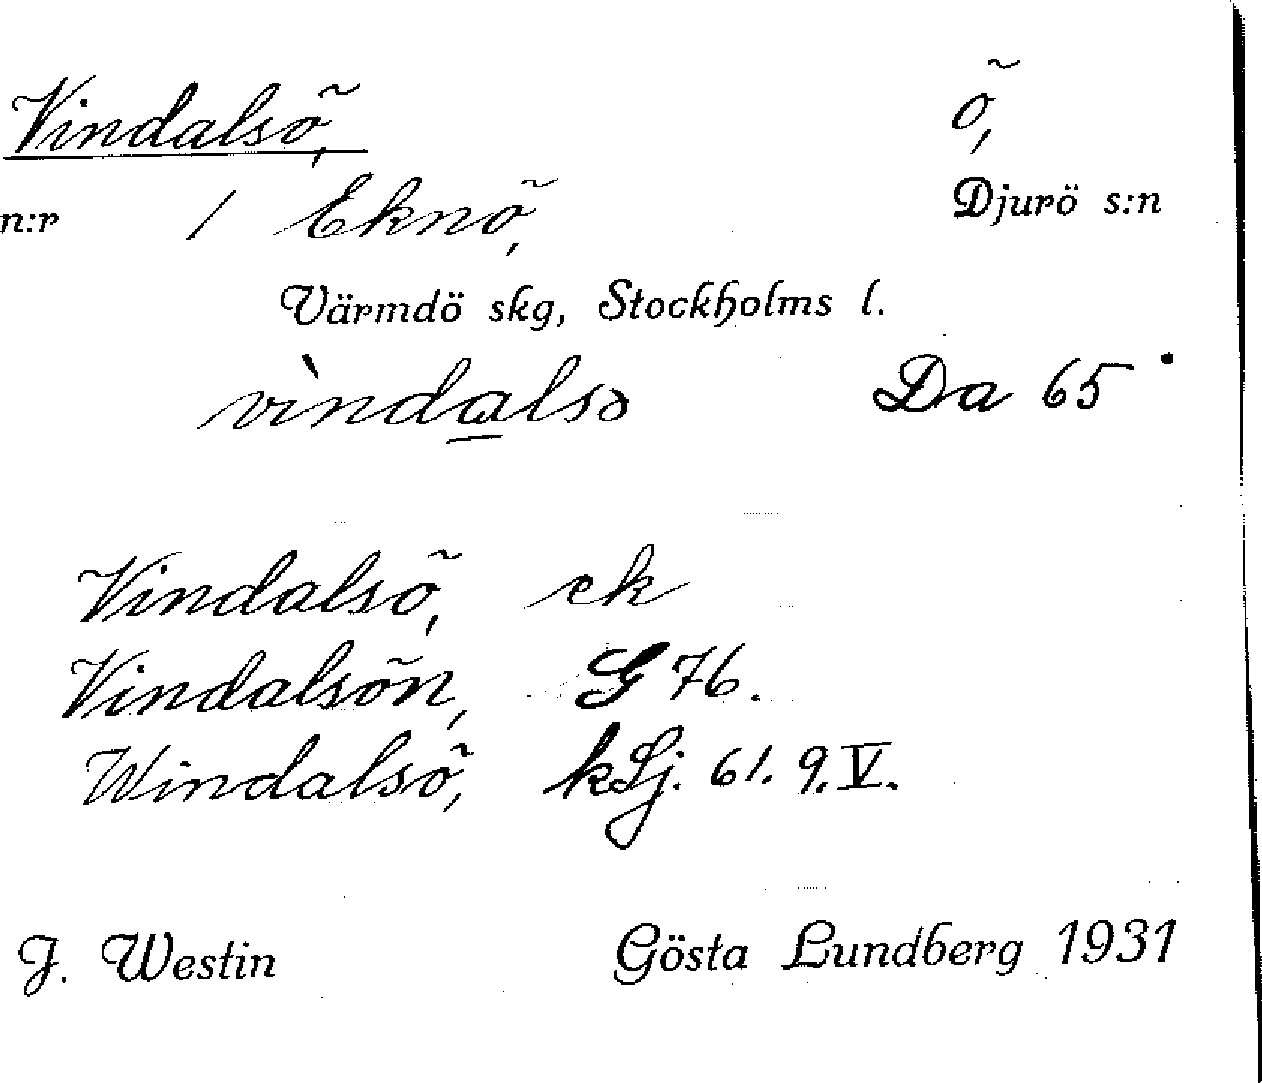 Vindalsö, ö,
n:r / Eknö, Djurö s:n
Värmdö skg, Stockholms l.
vìndalsɔ Da 65
Vindalsö, ek
Vindalsön, G 76.
Windalsö, kSj. 61. 9. V.
J. Westin Gösta Lundberg 1931